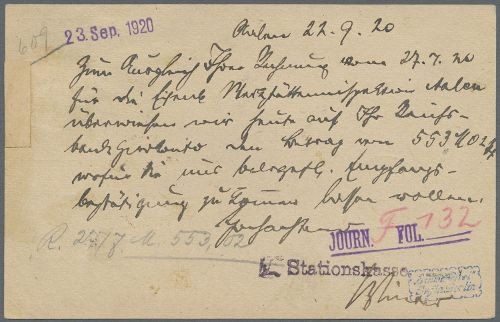 609
23. Sep. 1920
Aalen 22.9.20
Zum Ausgleich Ihrer Rechnung vom 27.7.20
für die Eisenb Werkstätteninspektion Aalen
überweisen wir heute auf Ihr Reichs-
bankgirokonto den Betrag von 553 M 02
wofür Sie uns belegstl. Empfangs-
bestätigung zu kommen lassen wollen.
Hochachtend
R. 27/7 M. 553,02
JOURN. FOL. F 132
K. Stationskasse